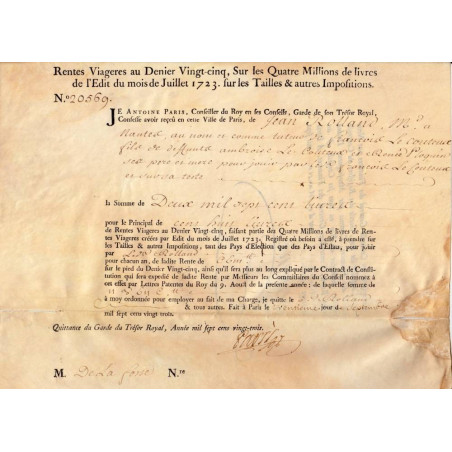 Rentes Viageres au Denier Vingt-cinq, Sur les Quatre Millions de livres
de l'Edit du mois de Juillet 1723. sur les Tailles & autres Impositions.
N.º 20569.
JE ANTOINE PARIS, Conseiller du Roy en ses Conseils, Garde de son Trésor Royal,
Confesse avoir reçû en cette Ville de Paris, de Jean Rolland M.d a
Nantes au nom et comme tuteur de François Le Couteux
fils de deffunts ambroise Le Couteux et Renée
ses pere et mere pour jouir par led. François Le Couteux
la Somme de Deux mil sept cens livres
pour le Principal de cent huit livres
de Rentes Viageres au Denier Vingt-cinq, faisant partie des Quatre Millions de livres de Rentes
Viageres créées par Edit du mois de Juillet 1723. Registré où besoin a esté, à prendre sur
les Tailles & autres Impositions, tant des Pays d'Election que des Pays d'Estats, pour joüir par
Rolland
pour chacun an, de ladite Rente de
sur le pied du Denier Vingt-cinq, ainsi qu'il sera plus au long expliqué par le Contract de Constitution
qui sera expedié de ladite Rente par Messieurs les Commissaires du Conseil nommez à
cet effet par Lettres Patentes du Roy du 9. Aoust de la presente année; de laquelle somme de
à moy ordonnée pour employer au fait de ma Charge, je quitte le Rolland
& tous autres. Fait à Paris le jour de
mil sept cens vingt-trois.
Quittance du Garde du Trésor Royal, Année mil sept cens vingt-trois.
M. De La N.re